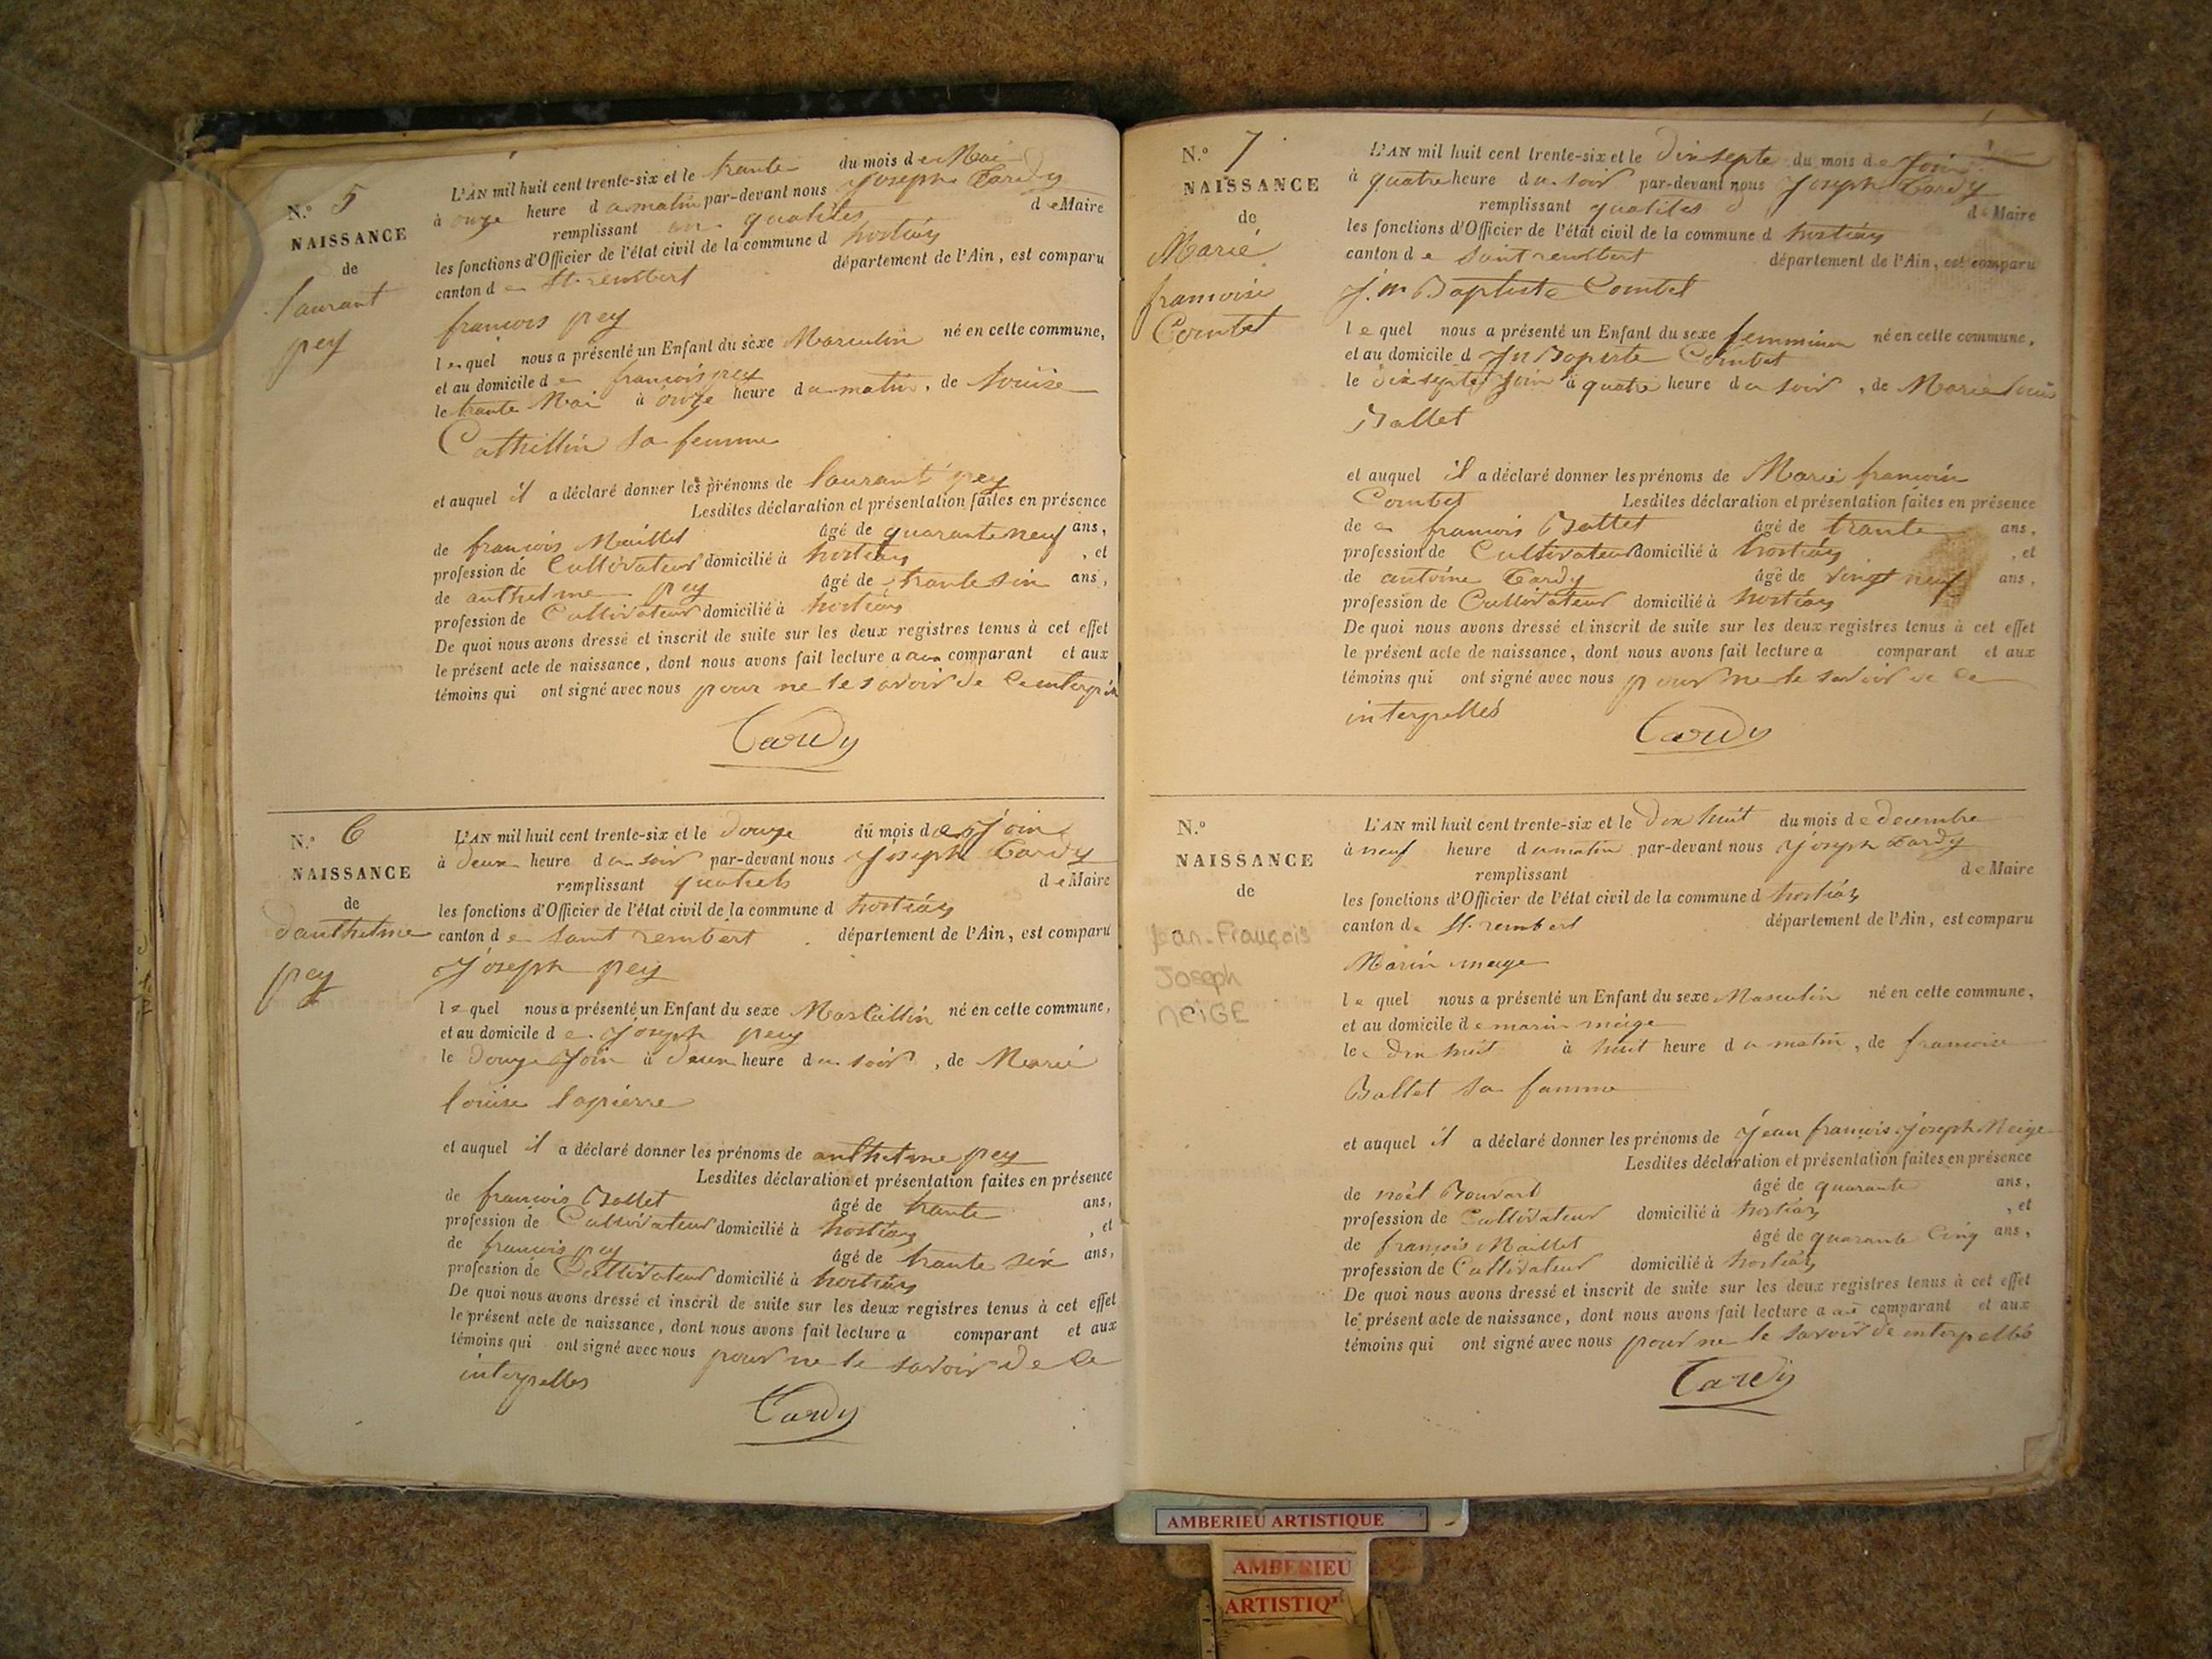 N.° 5
NAISSANCE
de
laurant
pey
L'AN mil huit cent trente-six et le trante du mois de Mai
à onze heure du matin par-devant nous Joseph Tardy
remplissant en qualites de Maire
les fonctions d'Officier de l'état civil de la commune d hostiaz
canton de St. rembert département de l'Ain, est comparu
francois pey
lequel nous a présenté un Enfant du sexe Masculin né en cette commune,
et au domicile de francois pey
le trante Mai à onze heure du matin, de louise
Cathillin sa femme
et auquel il a déclaré donner les prénoms de laurant pey
Lesdites déclaration et présentation faites en présence
de francois Maillet âgé de quarante neuf ans,
profession de Cultivateur domicilié à hostiaz, et
de anthelme pey âgé de trante six ans,
profession de Cultivateur domicilié à hostiaz
De quoi nous avons dressé et inscrit de suite sur les deux registres tenus à cet effet
le présent acte de naissance, dont nous avons fait lecture a au comparant et aux
témoins qui ont signé avec nous pour ne le savoir de ce
Tardy
N.° 6
NAISSANCE
de
d'anthelme
pey
L'AN mil huit cent trente-six et le douze du mois de Join
à deux heure du soir par-devant nous Joseph Tardy
remplissant de Maire
les fonctions d'Officier de l'état civil de la commune d hostiaz
canton de saint rembert département de l'Ain, est comparu
Joseph pey
lequel nous a présenté un Enfant du sexe Mascullin né en cette commune,
et au domicile de Joseph pey
le douze Join à deux heure du soir, de Marie
louise lapierre
et auquel il a déclaré donner les prénoms de anthelme pey
Lesdites déclaration et présentation faites en présence
de francois Ballet âgé de trante ans,
profession de Cultivateur domicilié à hostiaz, et
de francois pey âgé de trante six ans,
profession de Cultivateur domicilié à hostiaz
De quoi nous avons dressé et inscrit de suite sur les deux registres tenus à cet effet
le présent acte de naissance, dont nous avons fait lecture a comparant et aux
témoins qui ont signé avec nous pour ne le savoir de ce
interpelles
Tardy
N.° 7
NAISSANCE
de
Marie
francoise
Combet
L'AN mil huit cent trente-six et le dix septe du mois de Join
à quatre heure du soir par-devant nous Joseph Tardy
remplissant qualites de Maire
les fonctions d'Officier de l'état civil de la commune d hostiaz
canton de saint rembert département de l'Ain, est comparu
J.n Baptiste Combet
lequel nous a présenté un Enfant du sexe femminin né en cette commune,
et au domicile d Jn Baptiste Combet
le dix septe Join à quatre heure du soir, de Marie
Ballet
et auquel il a déclaré donner les prénoms de Marie francoise
Combet Lesdites déclaration et présentation faites en présence
de francois Ballet âgé de trante ans,
profession de Cultivateur domicilié à hostiaz, et
de antoine Tardy âgé de vingt neuf ans,
profession de Cultivateur domicilié à hostiaz
De quoi nous avons dressé et inscrit de suite sur les deux registres tenus à cet effet
le présent acte de naissance, dont nous avons fait lecture a comparant et aux
témoins qui ont signé avec nous pour ne le savoir de ce
interpellés
Tardy
N.°
NAISSANCE
de
Jean-François
Joseph
NEIGE
L'AN mil huit cent trente-six et le dix huit du mois de decembre
à neuf heure du matin par-devant nous Joseph Tardy
remplissant de Maire
les fonctions d'Officier de l'état civil de la commune d hostiaz
canton de St. rembert département de l'Ain, est comparu
Marin neige
lequel nous a présenté un Enfant du sexe Masculin né en cette commune,
et au domicile de marin neige
le dix huit à huit heure du matin, de francoise
Ballet sa famme
et auquel il a déclaré donner les prénoms de Jean francois Joseph Neige
Lesdites déclaration et présentation faites en présence
de noël Bouvard âgé de quarante ans,
profession de Cultivateur domicilié à hostiaz, et
de françois Maillet âgé de quarante Cinq ans,
profession de Cultivateur domicilié à hostiaz
De quoi nous avons dressé et inscrit de suite sur les deux registres tenus à cet effet
le présent acte de naissance, dont nous avons fait lecture a au comparant et aux
témoins qui ont signé avec nous pour ne le savoir de interpellés
Tardy
AMBERIEU ARTISTIQUE
AMBERIEU
ARTISTIQ